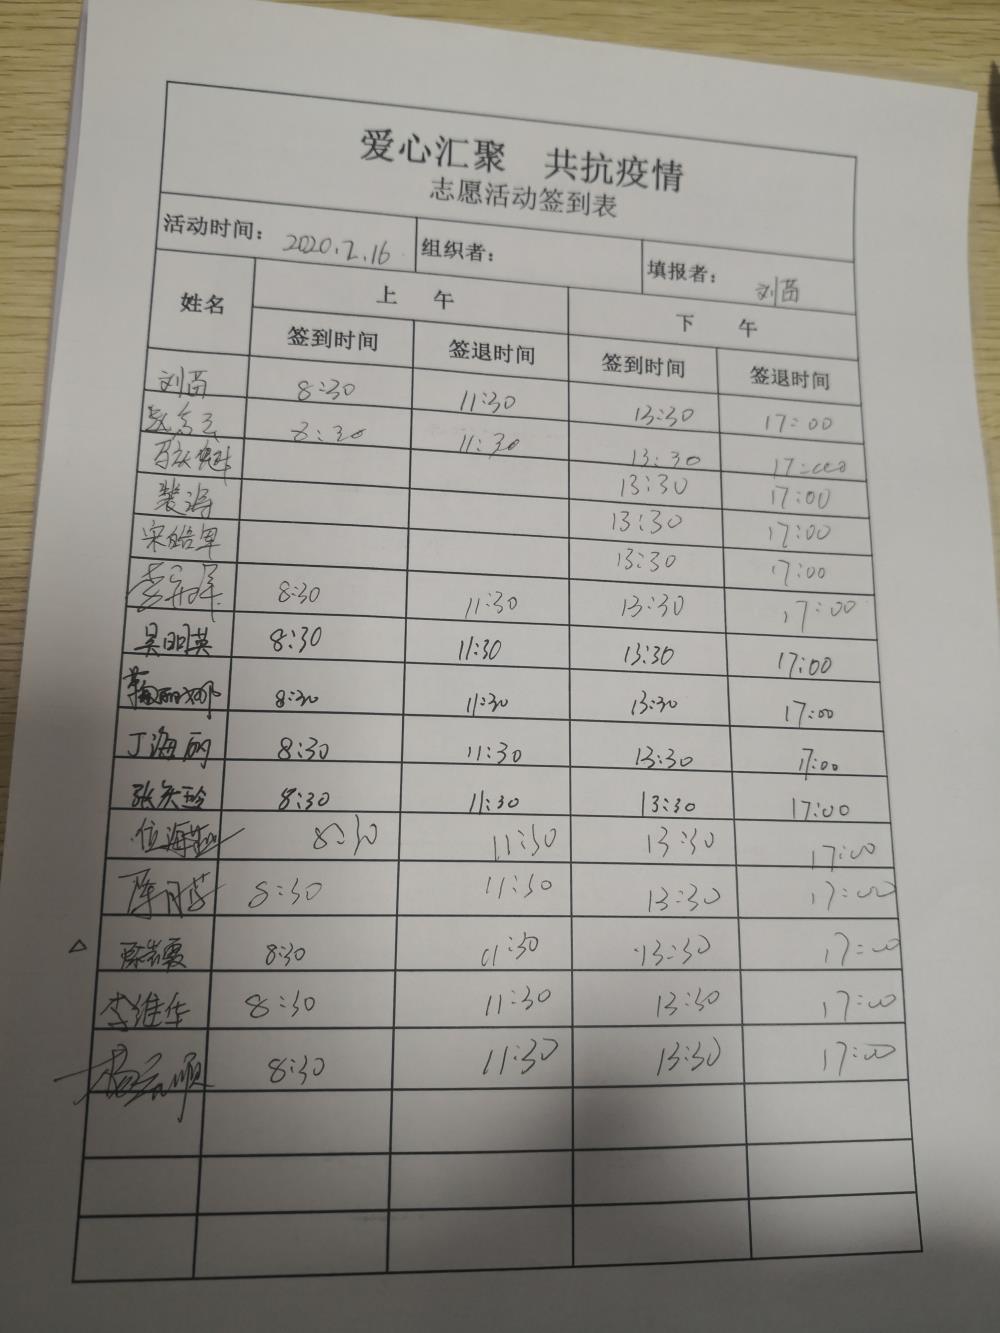 爱心汇聚 共抗疫情
志愿活动签到表
活动时间： 2020.2.16 组织者： 填报者： 刘苗
姓名 上 午 下 午
签到时间 签退时间 签到时间 签退时间
刘苗 8:30 11:30 13:30 17:00
8:30 11:30 13:30 17:00
13:30 17:00
裴涛 13:30 17:00
宋皓军 13:30 17:00
8:30 11:30 13:30 17:00
吴明英 8:30 11:30 13:30 17:00
8:30 11:30 13:30 17:00
丁海丽 8:30 11:30 13:30 17:00
8:30 11:30 13:30 17:00
8:30 11:30 13:30 17:00
8:30 11:30 13:30 17:00
8:30 11:30 13:30 17:00
李维华 8:30 11:30 13:30 17:00
8:30 11:30 13:30 17:00